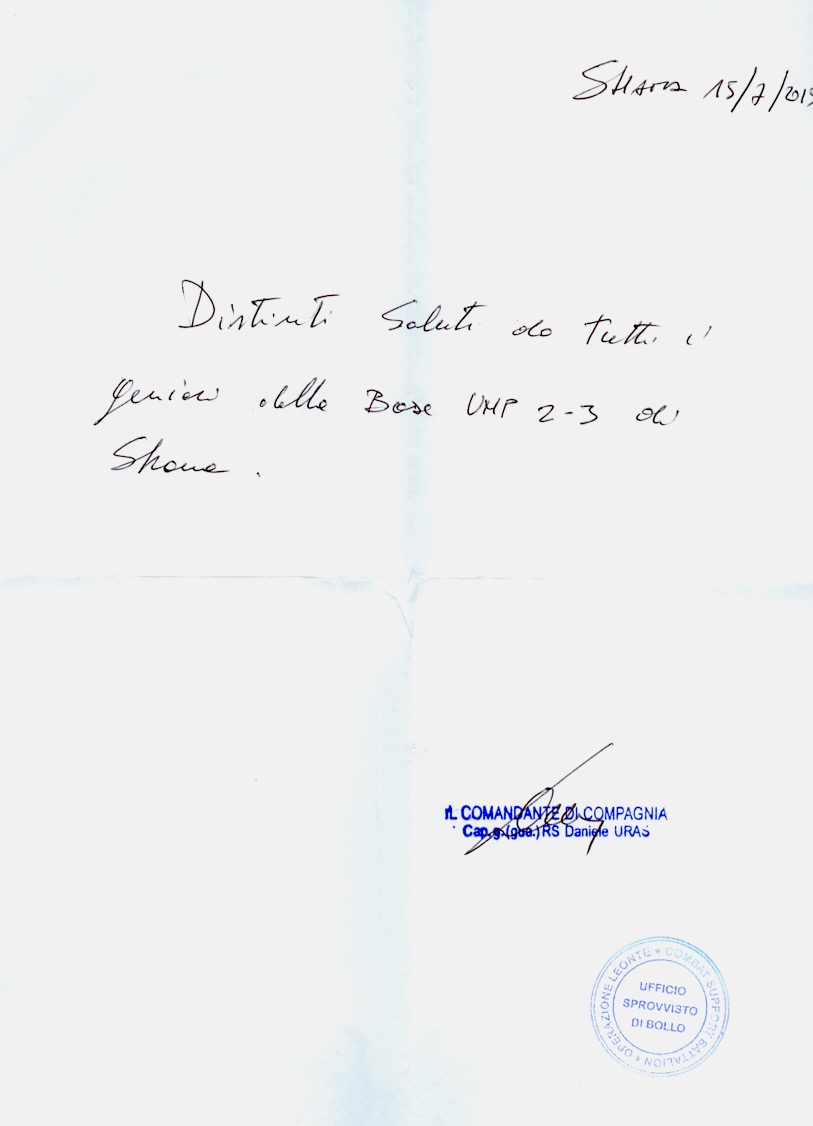 Shama 15/7/2015
Distinti Saluti da tutti i
genieri della Base UNP 2-3 di
Shama.
IL COMANDANTE DI COMPAGNIA
Cap.g.(gua.)RS Daniele URAS
OPERAZIONE LEONTE * COMBAT SUPPORT BATTALION *
UFFICIO
SPROVVISTO
DI BOLLO